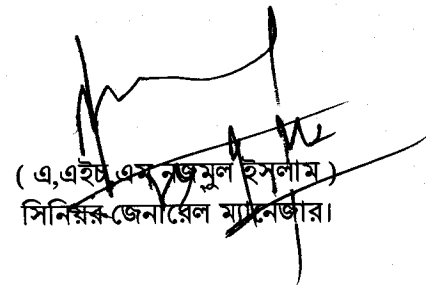 ( এ,এইচ এম নজমুল ইসলাম )
সিনিয়র জেনারেল ম্যানেজার।